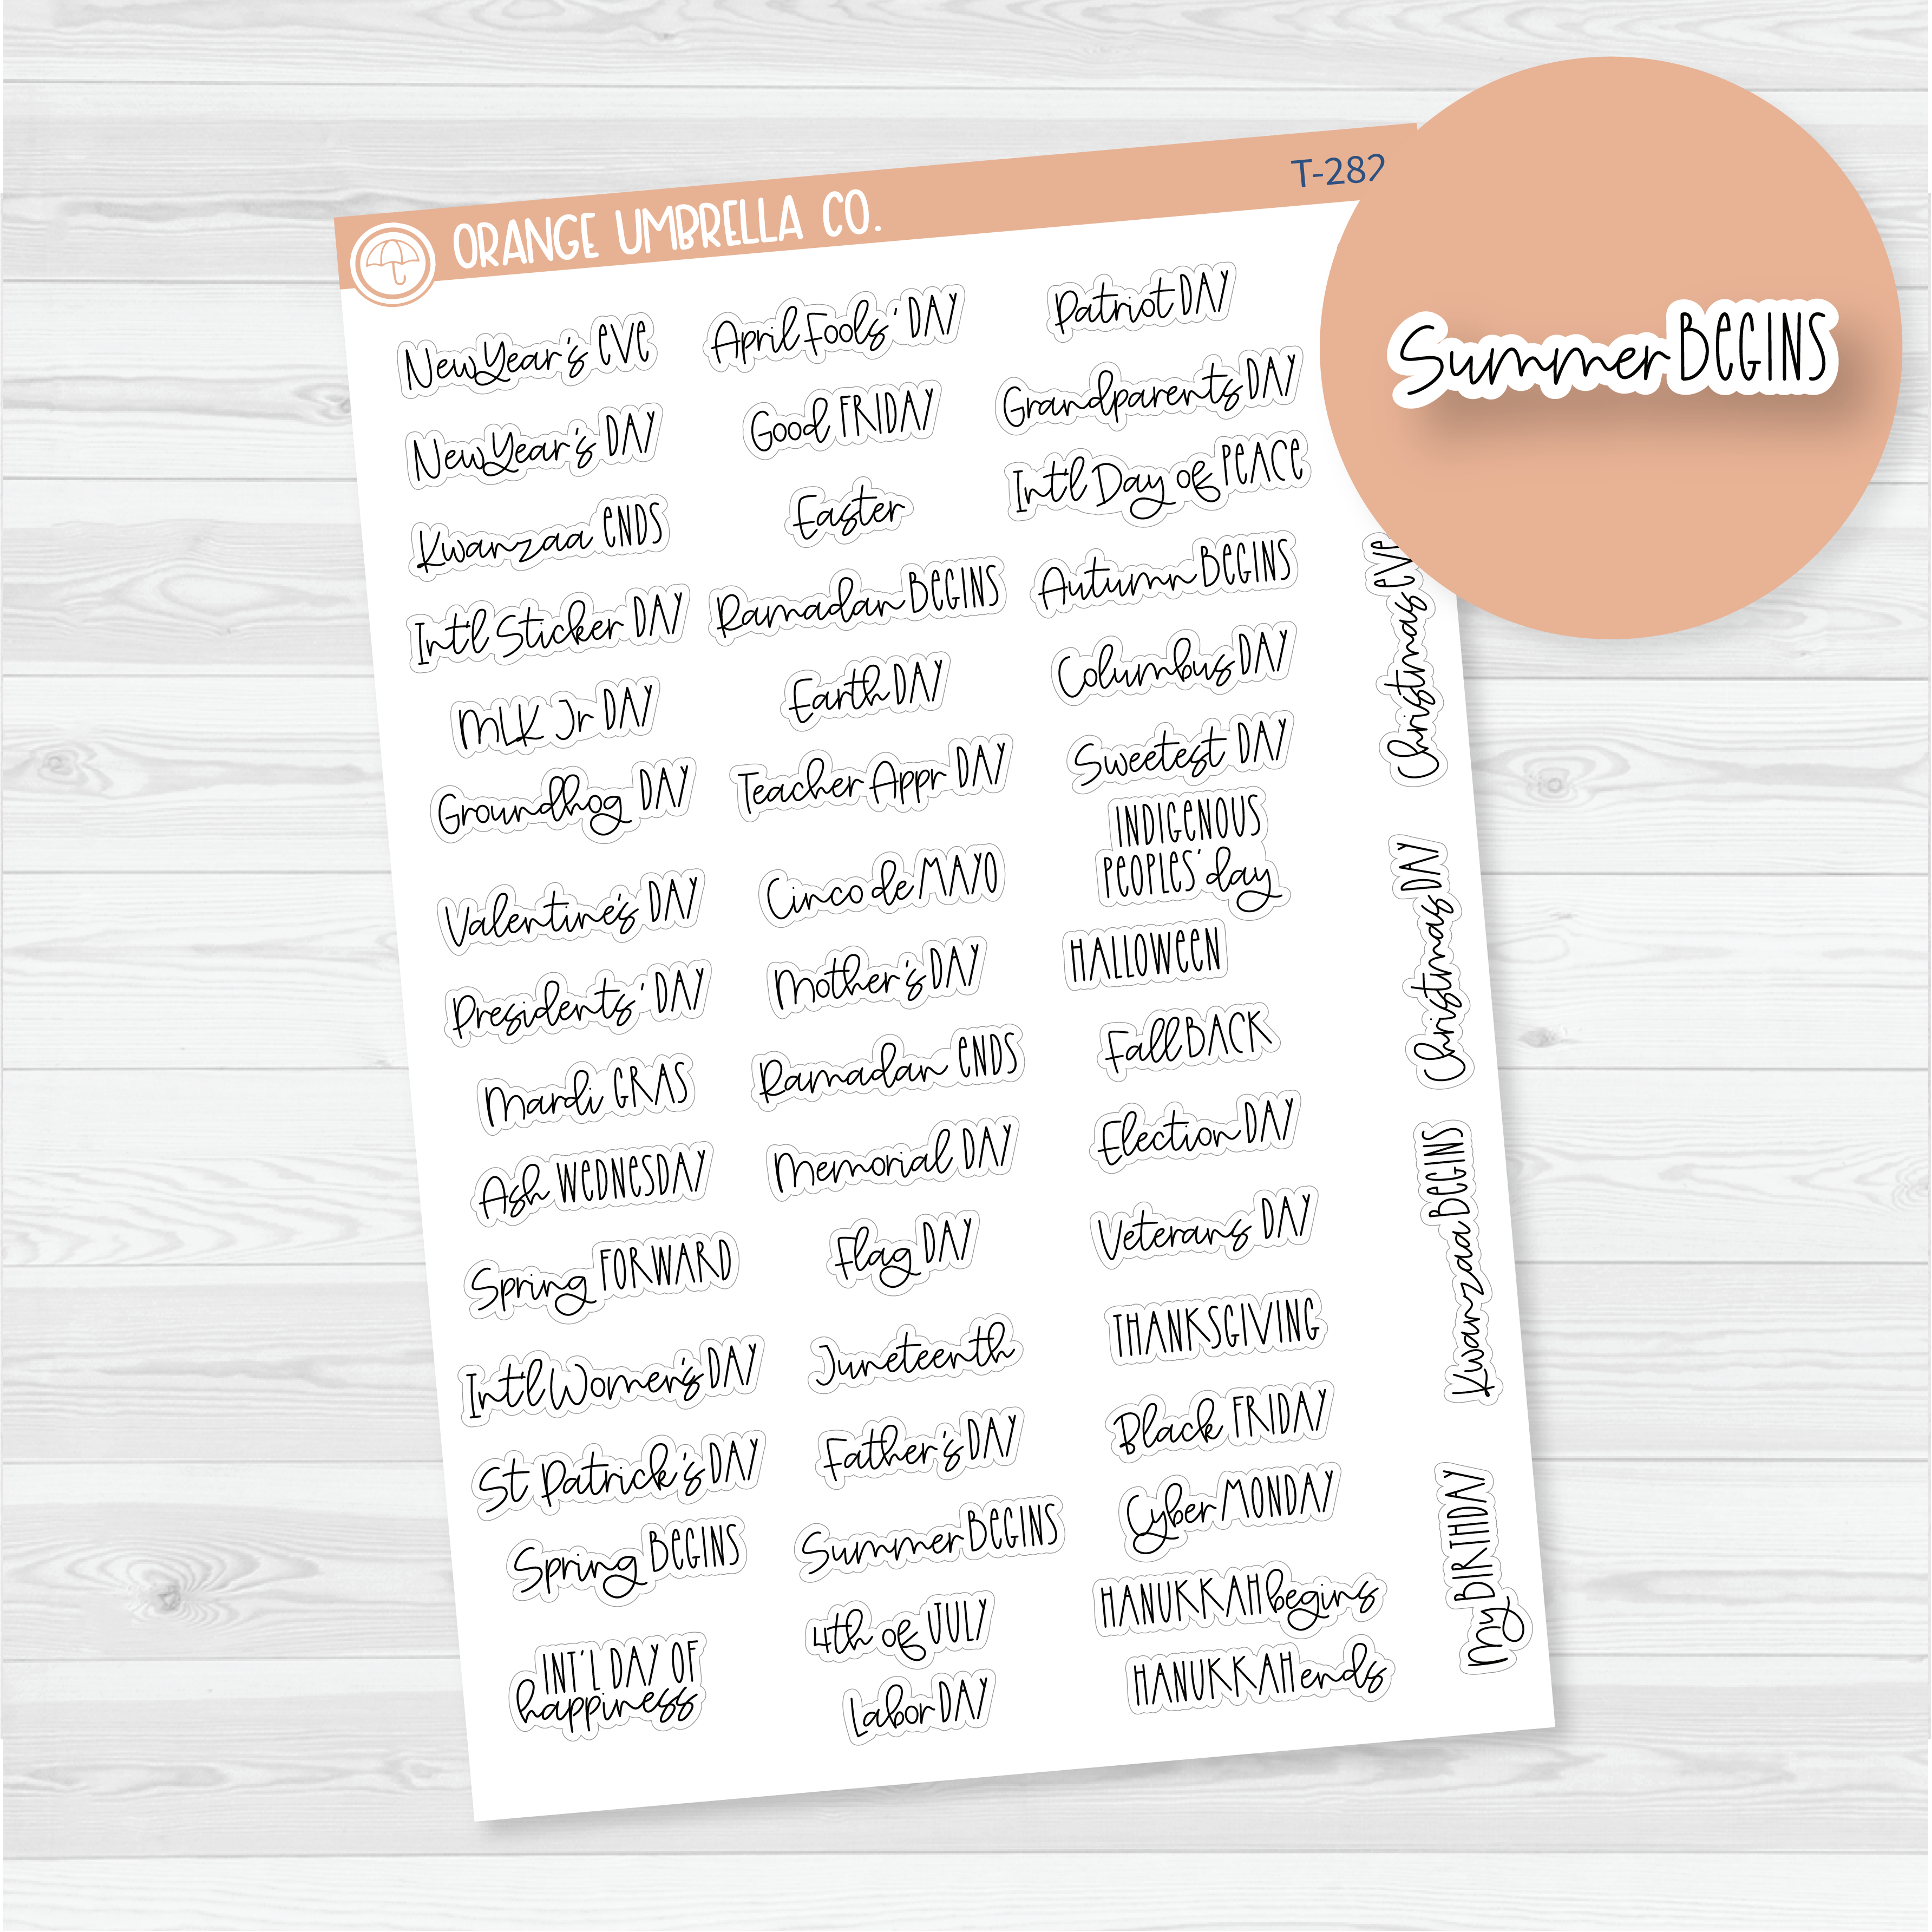 ORANGE UMBRELLA CO.
T-287
New Year's EVE
New Year's DAY
Kwanzaa ENDS
Int'l Sticker DAY
MLK Jr DAY
Groundhog DAY
Valentine's DAY
Presidents' DAY
Mardi GRAS
Ash WEDNESDAY
Spring FORWARD
Int'l Women's DAY
St Patrick's DAY
Spring BEGINS
INT'L DAY OF
happiness
April Fools' DAY
Good FRIDAY
Easter
Ramadan BEGINS
Earth DAY
Teacher Appr DAY
Cinco de MAYO
Mother's DAY
Ramadan ENDS
Memorial DAY
Flag DAY
Juneteenth
Father's DAY
Summer BEGINS
4th of JULY
Labor DAY
Patriot DAY
Grandparents DAY
Int'l Day of PEACE
Autumn BEGINS
Columbus DAY
Sweetest DAY
INDIGENOUS
PEOPLES' day
HALLOWEEN
Fall BACK
Election DAY
Veterans DAY
THANKSGIVING
Black FRIDAY
Cyber MONDAY
HANUKKAH begins
HANUKKAH ends
Christmas EVE
Christmas DAY
Kwanzaa BEGINS
My BIRTHDAY
Summer BEGINS